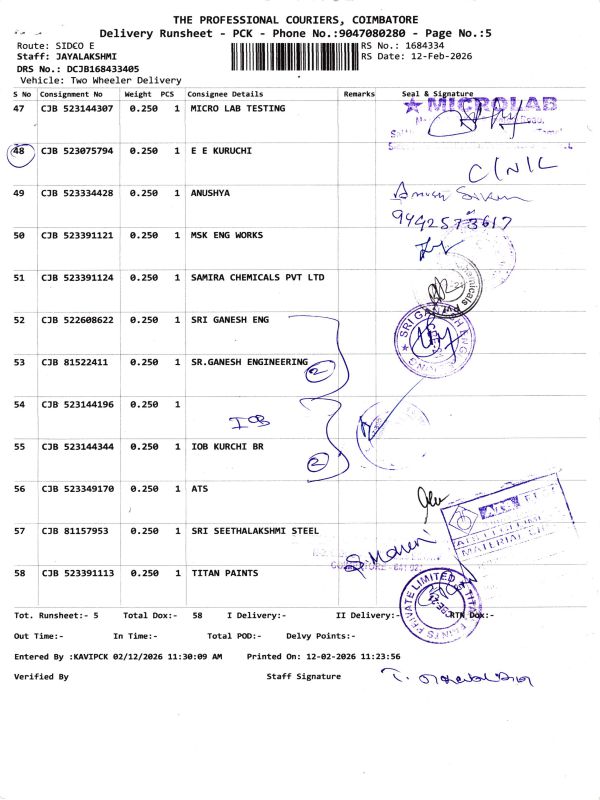 THE PROFESSIONAL COURIERS, COIMBATORE
Delivery Runsheet - PCK - Phone No.:9047080280 - Page No.:5
Route: SIDCO E RS No.: 1684334
Staff: JAYALAKSHMI RS Date: 12-Feb-2026
DRS No.: DCJB168433405
Vehicle: Two Wheeler Delivery
S No Consignment No Weight PCS Consignee Details Remarks Seal & Signature
47 CJB 523144307 0.250 1 MICRO LAB TESTING MICROLAB
48 CJB 523075794 0.250 1 E E KURUCHI
C/N/L
49 CJB 523334428 0.250 1 ANUSHYA
9442573617
50 CJB 523391121 0.250 1 MSK ENG WORKS
51 CJB 523391124 0.250 1 SAMIRA CHEMICALS PVT LTD
52 CJB 522608622 0.250 1 SRI GANESH ENG
53 CJB 81522411 0.250 1 SR.GANESH ENGINEERING
2
54 CJB 523144196 0.250 1
IOB
55 CJB 523144344 0.250 1 IOB KURCHI BR
2
56 CJB 523349170 0.250 1 ATS
57 CJB 81157953 0.250 1 SRI SEETHALAKSHMI STEEL
58 CJB 523391113 0.250 1 TITAN PAINTS
Tot. Runsheet:- 5 Total Dox:- 58 I Delivery:- II Delivery:- RTN Dox:-
Out Time:- In Time:- Total POD:- Delvy Points:-
Entered By :KAVIPCK 02/12/2026 11:30:09 AM Printed On: 12-02-2026 11:23:56
Verified By Staff Signature